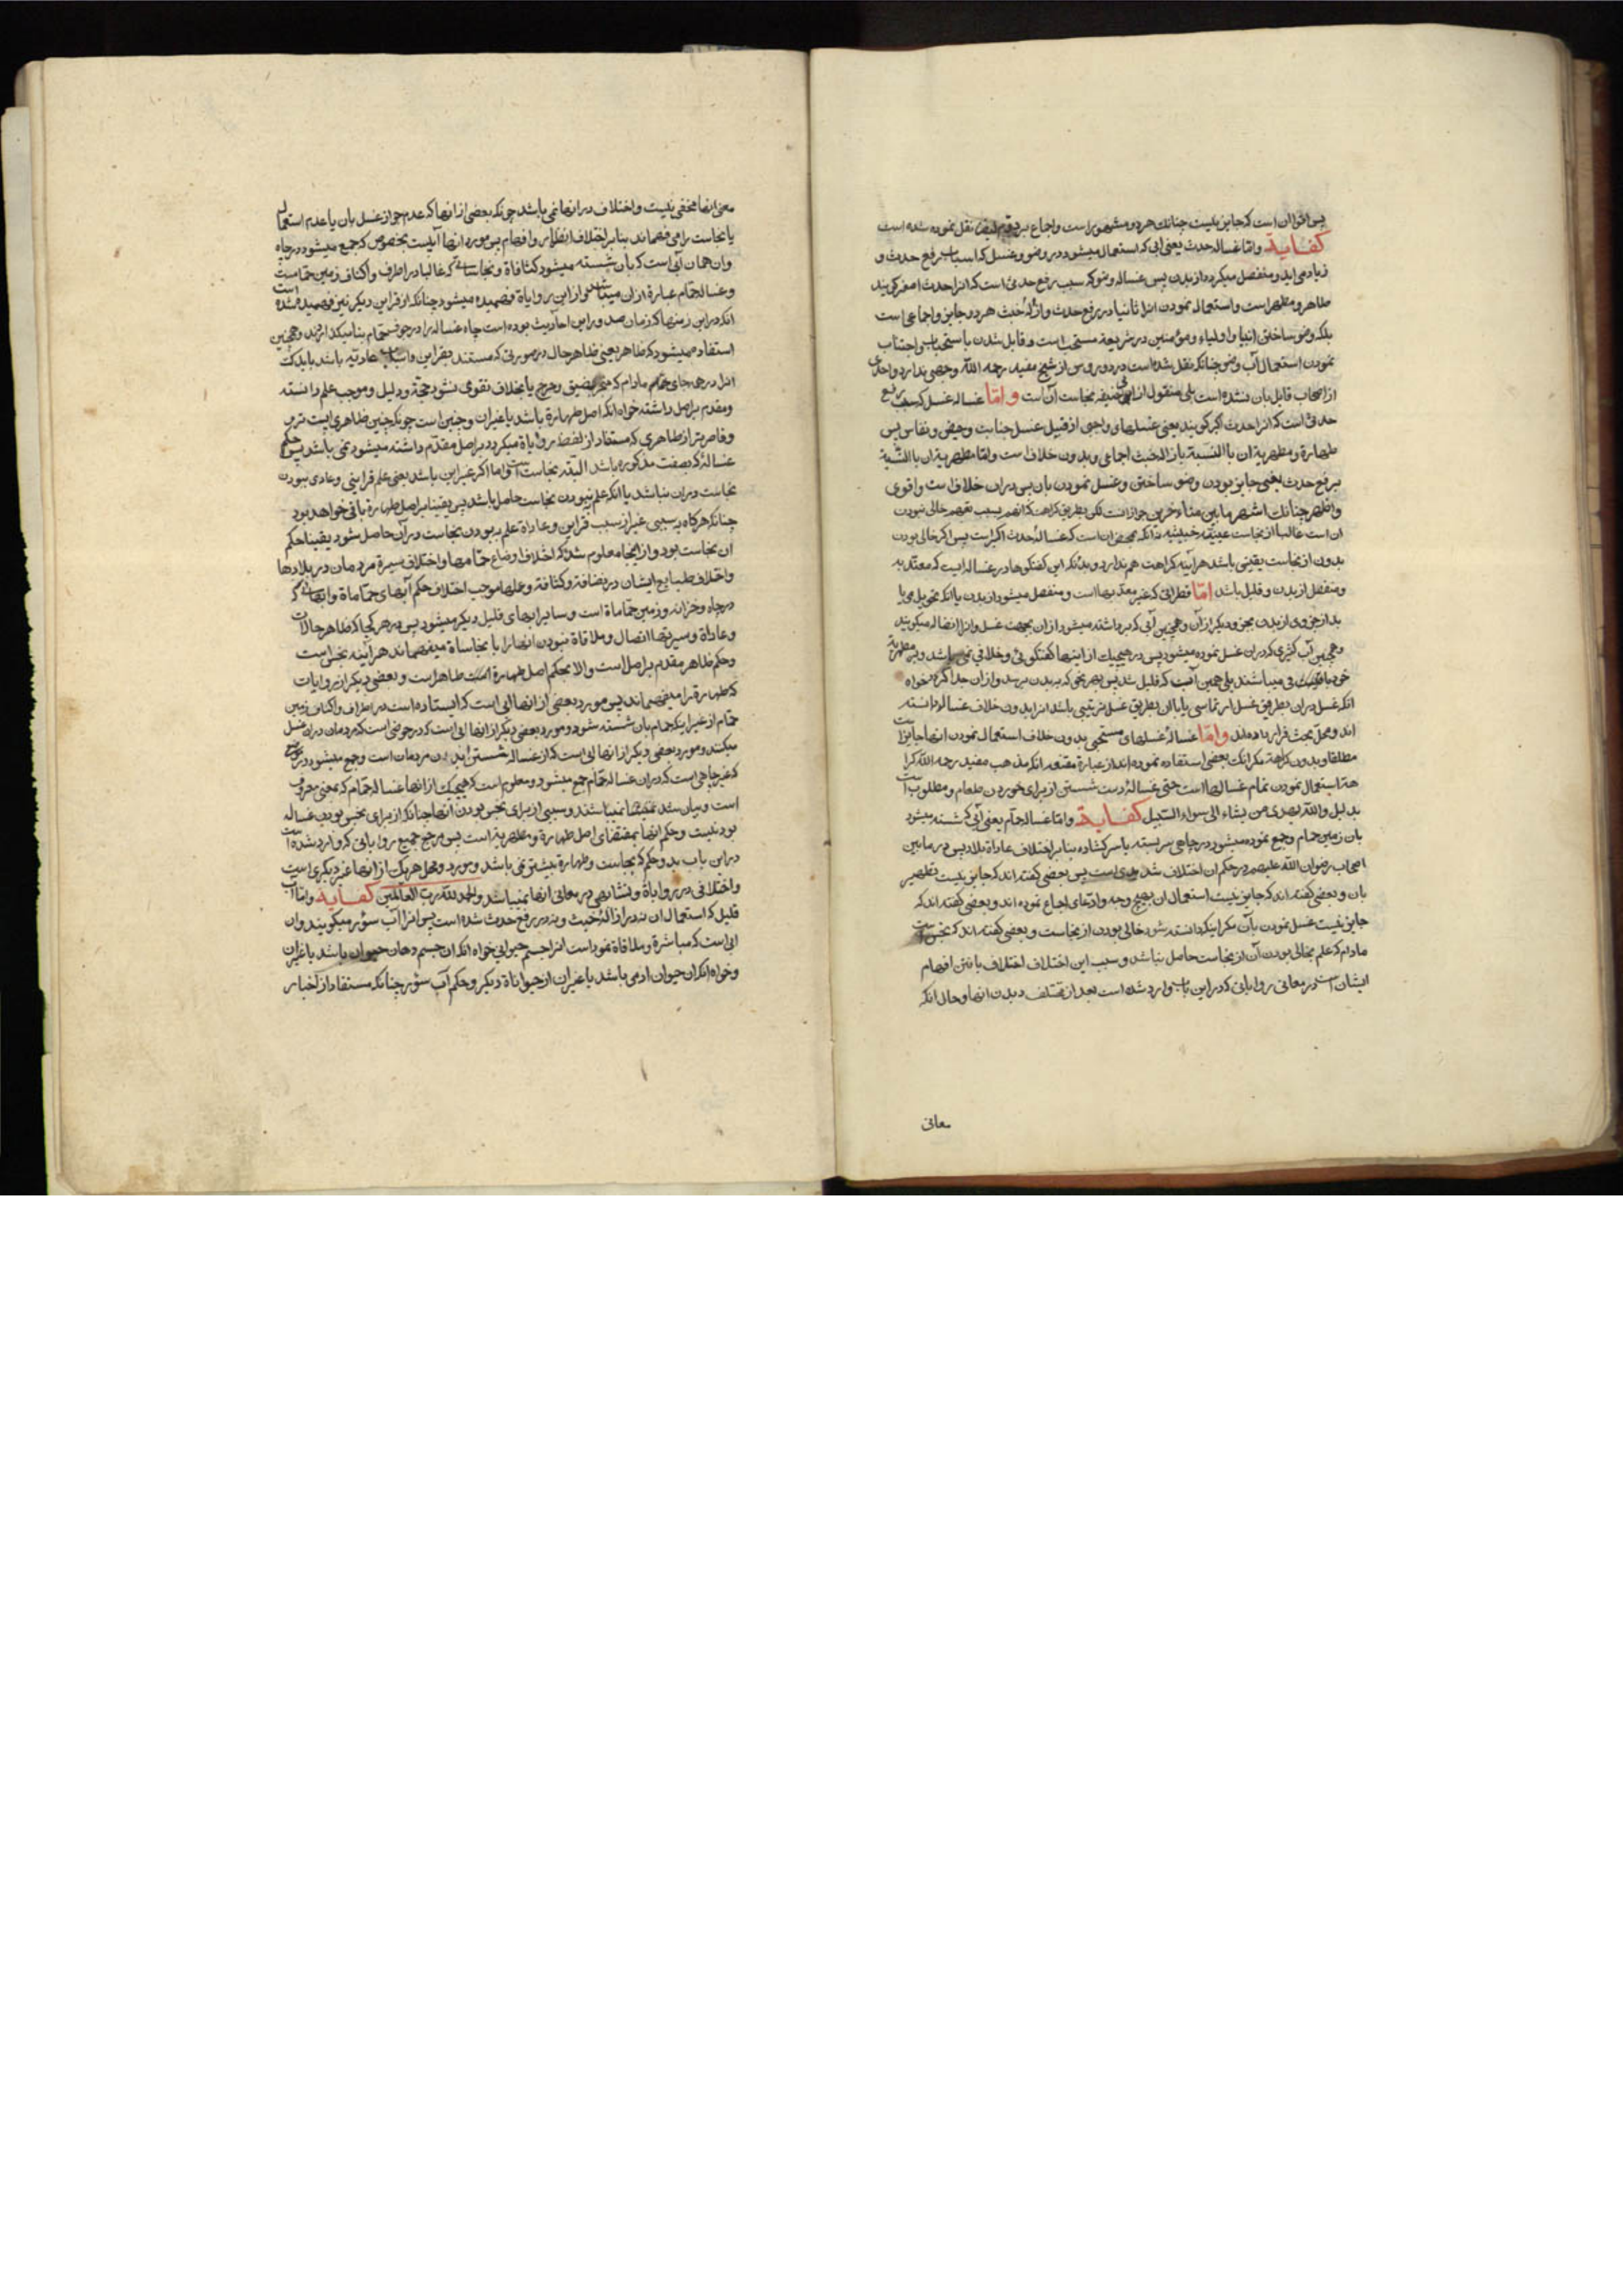 پس اقوا ان است که جایز نیست چنانکه هر دو مشهور است و اجماع بر دویم نیز نقل نموده شده است
کفایة و امّا غساله حدث یعنی آبی که استعمال میشود در وضو و غسل که اسباب رفع حدث و
زیاد می اید و منفصل میکردد از بدن پس غساله وضو که سبب رفع حدثی است که انرا حدث اصغر کویند
طاهر و مطهر است و استعمال نمودن انرا ثانیا در رفع حدث و ازالهٔ خبث هر دو جایز و اجماعی است
بلکه وضو ساختن انبیا و اولیاء و مؤمنین در شریعة مستحب است و قابل شدن باستحباب اجتناب
نمودن استعمال آب وضو چنانکه نقل شده است در دروس از شیخ مفید رحمه الله وجهی ندارد و احدی
از اصحاب قابل بان نشده است بلی منقول از ابی حنیفه نجاست آن است و امّا غساله غسل که سبب رفع
حدثی است که انرا حدث اکبر کویند یعنی غسلهای واجبی از قبیل غسل جنابت و حیض و نفاس پس
طهارة و مطهریة ان باالنسبة بازاله خبث اجماعی و بدون خلاف است و امّا مطهریة ان باالنّسبة
برفع حدث یعنی جایز بودن وضو ساختن و غسل نمودن بان پس دران خلاف است و اقوی
و اظهر چنانکه اشهر ما بین متأخرین جواز است لکن بطریق کراهت که انهم بسبب توهم خالی نبودن
ان است غالبا از نجاست عینیّه خبیثیه نه آنکه محض ان است که غسالهٔ حدث اکبر است پس اکر خالی بودن
بدون از نجاست یقینی باشد هرآینه کراهت هم ندارد و بدانکه این کفتکوها در غساله ایست که معتد به
و منفصل از بدن و قلیل باشد امّا قطراتی که غیر معتدّ بها است و منفصل میشود از بدن یا انکه تحویل می یا
بد از جزوی از بدن بجزو دیکر از آن و همچنین آبی که برداشته میشود از ان بجهت غسل و انرا انضاله میکویند
و همچنین آب کثیری که دران غسل نموده میشود پس در هیچیک از اینها کفتکوئی و خلافی نمی باشد و بر مطهریة
خود باقی میباشند بلی همین آب که قلیل شد پس بهر نحوی که ببدن برسد و از ان جدا کردد خواه
انکه غسل دران بطریق غسل ارتماسی یا با ان بطریق غسل ترتیبی باشد انرا بدون خلاف غساله دانسته
اند و محل بحث قرار داده اند و امّا غسالهٔ غسلهای مستحبی بدون خلاف استعمال نمودن انها جایز است
مطلقا و بدون کراهة مکر انکه بعضی استفاده نموده اند از عبارة مقنعه انکه مذهب مفید رحمه الله کرا
هة استعمال نمودن تمام غسالها است حتی غسالهٔ دست شستن از برای خوردن طعام و مطلوب است
بدلیل و الله یهدی من یشاء الی سواء السّبیل کفایة و امّا غساله حمّام یعنی آبی که شسته میشود
بان زمین حمام و جمع نموده میشود در چاهی سربسته یا سرکشاده بنا بر اختلاف عاداة بلاد پس در ما بین
اصحاب رضوان الله علیهم در حکم ان اختلاف شدیدی است پس بعضی کفته اند که جایز نیست تطهیر
بان و بعضی کفته اند که جایز نیست استعمال ان بهیچ وجه و ادّعای اجماع نموده اند و بعضی کفته اند که
جایز نیست غسل نمودن بآن مکر اینکه دانسته شود خالی بودن از نجاست و بعضی کفته اند که نجس است
مادام که علم بخالی بودن آن از نجاست حاصل نباشد و سبب این اختلاف اختلاف یافتن افهام
ایشان است در معانی روایاتی که در این باب وارد شده است بعد از مختلف دیدن انها و حال انکه
معانی
معنی انها مخفی نیست و اختلاف در انها نمی باشد چونکه بعضی از انها که عدم جواز غسل بان یا عدم استعمال
یا نجاست را می فهماند بنا بر اختلاف انظار و افهام پس مورد انها آبیست بخصوص که جمع میشود در چاه
و ان همان آبی است که بان شسته میشود کثافاة و نجاساتی که غالبا در اطراف و اکناف زمین حمّام است
و غساله حمّام عبارة از ان میباشد و از این روایاة فهمیده میشود چنانکه از قراین دیکر نیز فهمیده شده است
انکه در این زمنها که زمان صدور این احادیث بوده است چاه غساله را در جوف حمّام بنا میکذاردند و همچنین
استفاده میشود که ظاهر یعنی ظاهر حال در صورتی که مستند بقراین و اسباب عادتیه باشد باید که
انرا در همه جای حمّام مادام که منجر بضیق و حرج یا بخلاف تقوی نشود حجّة و دلیل و موجب علم دانسته
و مقدم بر اصل داشته خواه انکه اصل طهارة باشد یا غیر ان و چنین است چونکه چنین ظاهری پست تر و
و قاصرتر از ظاهری که مستفاد از لفظ روایاة میکردد بر اصل مقدّم داشته میشود نمی باشد پس حکم
غسالهٔ که بصفت مذکوره باشد البته نجاست است و اما اکر غیر این باشد یعنی علم قراینی و عادی ببودن
نجاست در ان نباشد یا انکه علم نبودن نجاست حاصل باشد پس یقینا بر اصل طهارة باقی خواهد بود
چنانکه هرکاه بسببی غیر از سبب قراین و عاداة علم ببودن نجاست در آن حاصل شود یقینا حکم
ان نجاست بود و از اینجا معلوم شد که اختلاف اوضاع حمّامها و اختلاف سیرة مردمان در بلادها
و اختلاف طبایع ایشان در نضافة و کثافة و عملها موجب اختلاف حکم آبهای حمّاماة و ابهائی که
در چاه و خزانه و زمین حمّاماة است و سایر ابهای قلیل دیکر میشود پس در هر کجا که ظاهر حالات
و عاداة و سیرتها اتصال و ملاقاة نبودن انها را با نجاساة میفهماند هرآینه نجس است
و حکم ظاهر مقدم بر اصل است والا بحکم اصل طهارة البته طاهر است و بعضی دیکر از روایات
که طهارة را میفهماند پس مورد بعضی از انها ابی است که ایستاده است در اطراف و اکناف زمین
حمّام از غیر اینکه حمام بان شسته شود و مورد بعضی دیکر از انها ابی است که در حوضی است که مردمان دران غسل
میکنند و مورد بعضی دیکر از انها ابی است که از غساله شستن ابدان مردمان است و جمع میشود در موضعی
که غیر چاهی است که دران غساله حمّام جمع میشود و معلوم است که هیچیک از انها غساله حمّام که بمعنی معروف
است و بیان شد نمیباشند و سببی از برای نجس بودن انها چنانکه از برای نجس بودن غساله
بود نیست و حکم انها بمقتضای اصل طهارة و مطهریة است پس مرجع جمیع روایاتی که وارد شده است
در این باب بدو حکم که نجاست و طهارة بیش نمی باشد و مورد و محل هریک از انها غیر دیکری است
و اختلافی در روایاة و تشابهی در معانی انها نمیباشد و الحمد لله رب العالمین کفایة و امّا آب
قلیل که استعمال ان نه در ازالهٔ خبث و نه در رفع حدث شده است پس انرا آب سؤر میکویند و ان
ابی است که مباشرة و ملاقاة نموداست انرا جسم حیوانی خواه انکه ان جسم دهان حیوان باشد یا غیر ان
و خواه انکه ان حیوان ادمی باشد یا غیر ان از حیواناة دیکر و حکم آب سؤر چنانکه مستفاد از اخبار